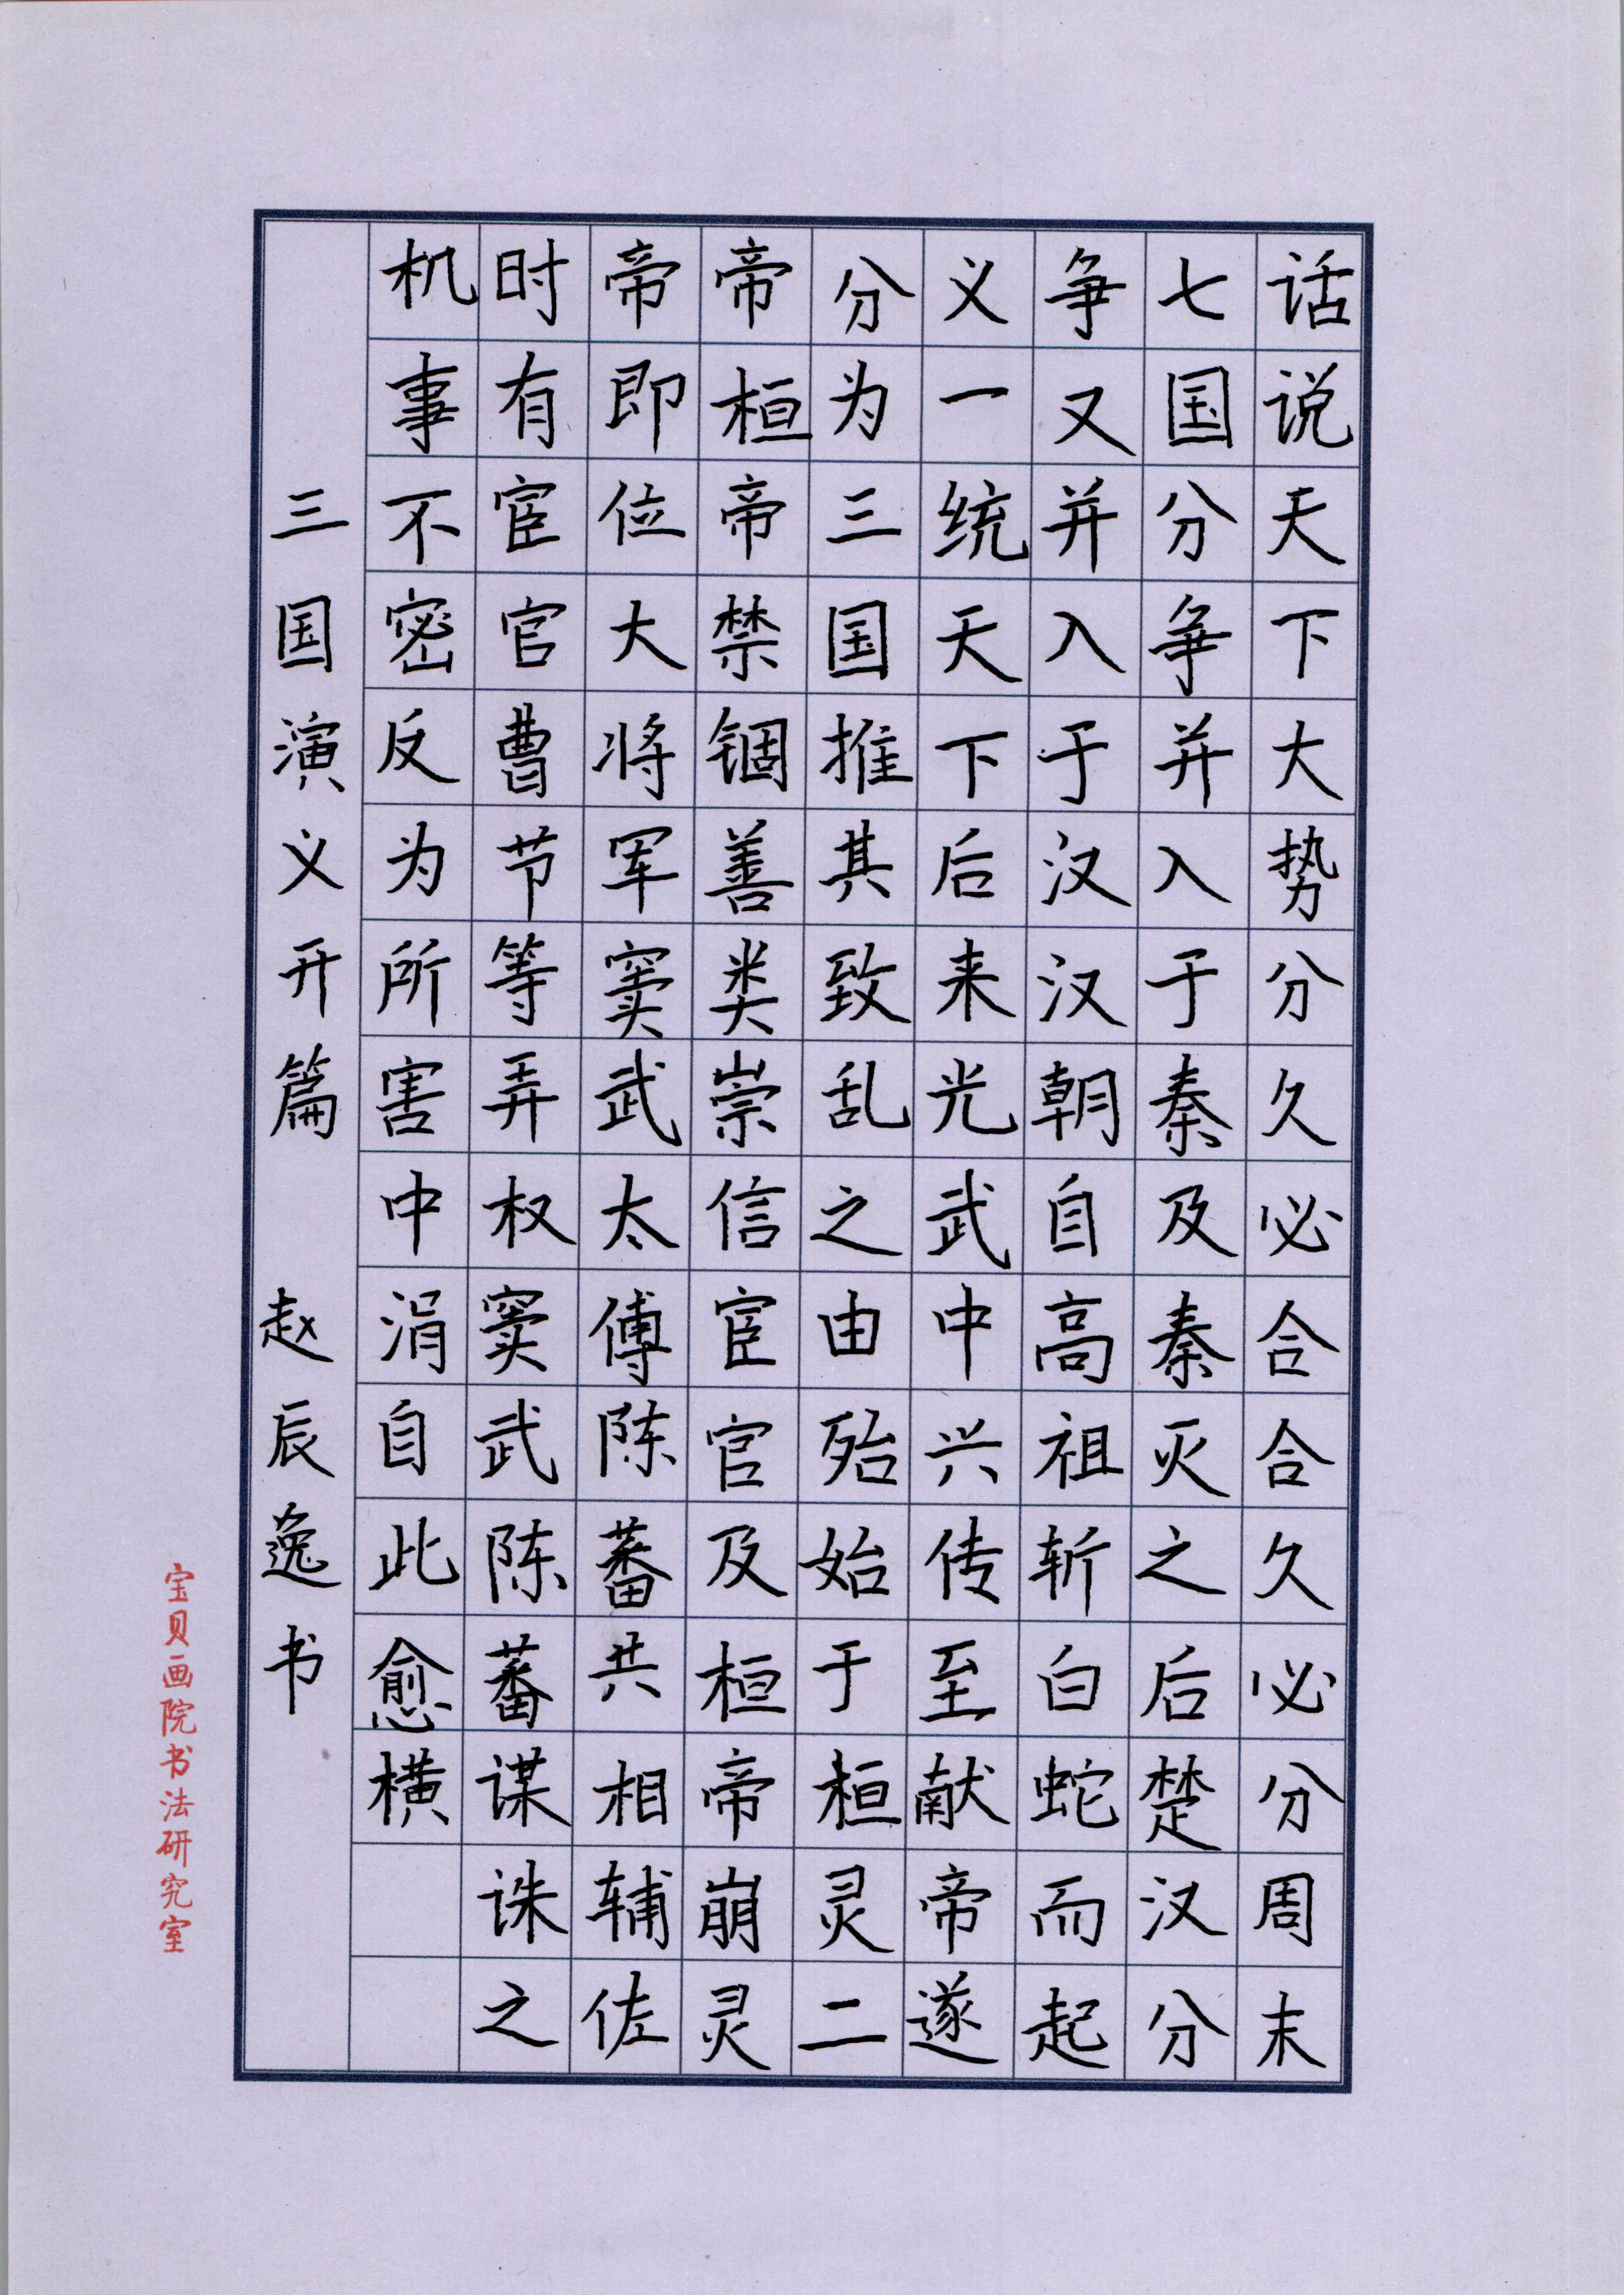 话说天下大势分久必合合久必分周末
七国分争并入于秦及秦灭之后楚汉分
争又并入于汉汉朝自高祖斩白蛇而起
义一统天下后来光武中兴传至献帝遂
分为三国推其致乱之由殆始于桓灵二
帝桓帝禁锢善类崇信宦官及桓帝崩灵
帝即位大将军窦武太傅陈蕃共相辅佐
时有宦官曹节等弄权窦武陈蕃谋诛之
机事不密反为所害中涓自此愈横
三国演义开篇 赵辰逸书
宝贝画院书法研究室